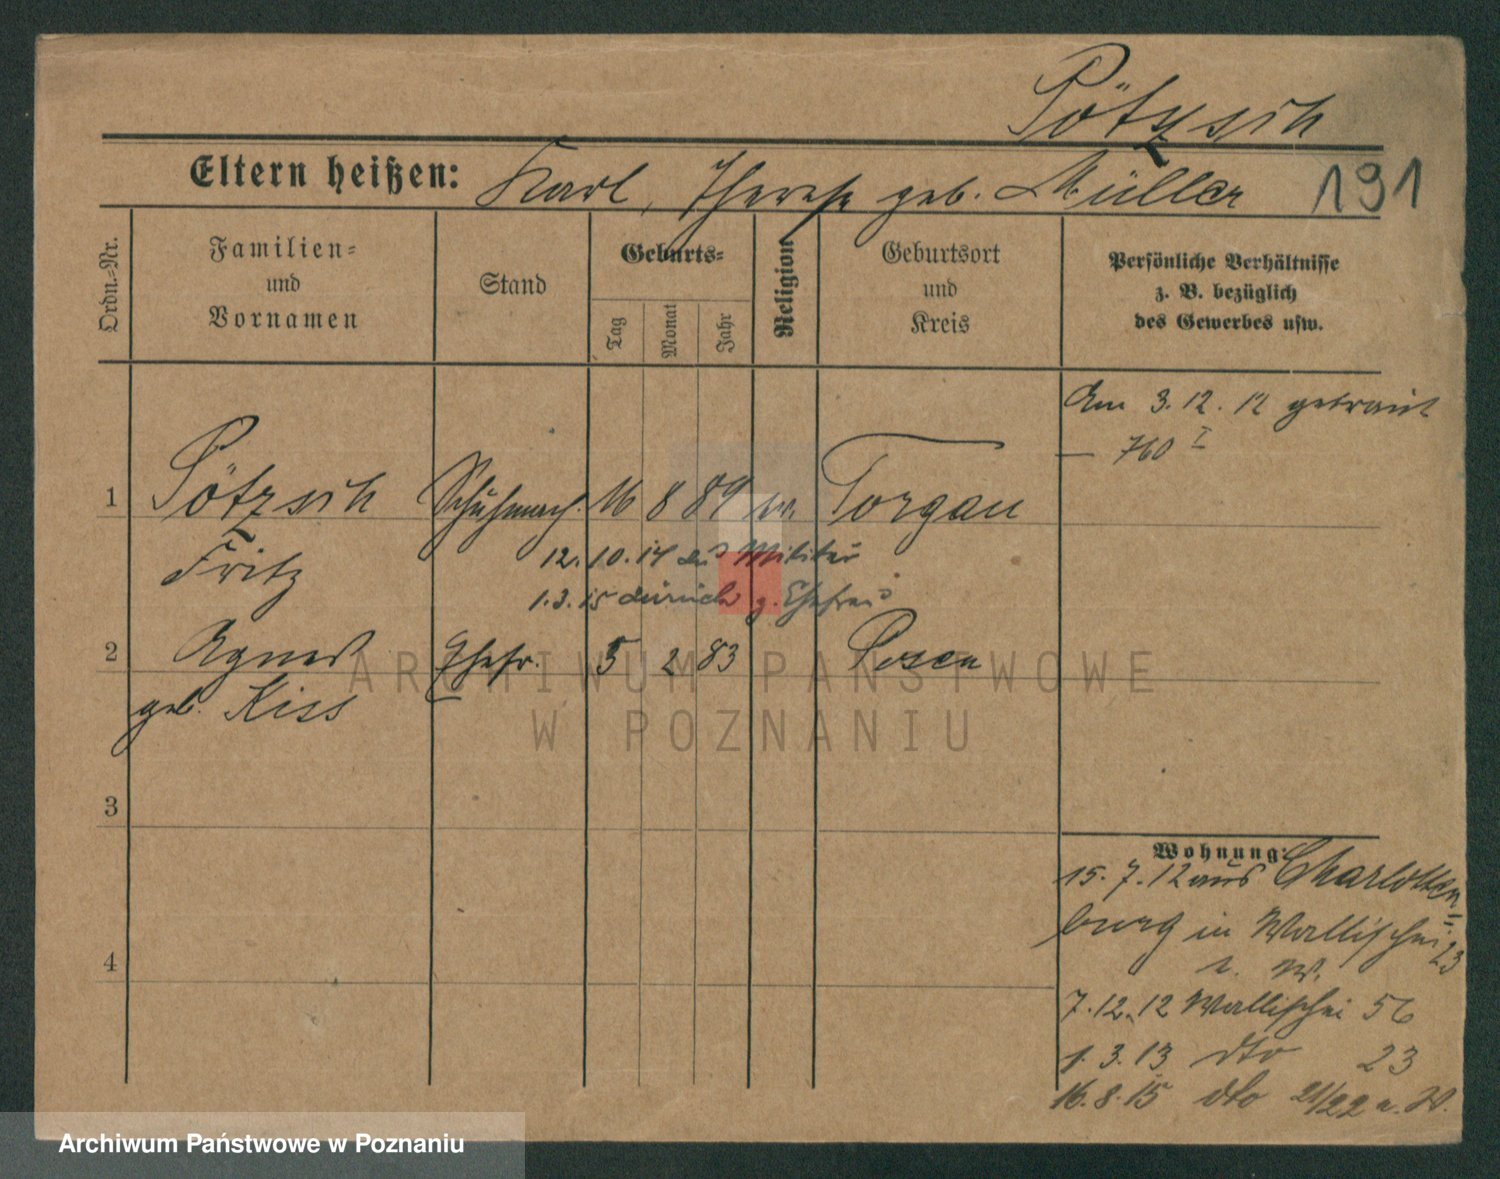 Pötzsch
Eltern heißen: Karl, Therese geb. Müller 191
Ordn.-Nr.
Familien- und Vornamen
Stand
Geburts-
Tag
Monat
Jahr
Religion
Geburtsort und Kreis
Persönliche Verhältnisse
z. B. bezüglich
des Gewerbes usw.
Am 3.12.12 getraut
— 760 I
1 Pötzsch Schuhmach. 16 8 89 ev. Torgau
Fritz
12.10.14 Militär
1.3.15 zurück z. Ehefrau
2 Agnes Ehefr. 5 2 83 Posen
geb. Kiss
3
4
Wohnung:
15.7.12 aus Charlotten-
burg in Wallischei 23
7.12.12 Wallischei 56
1.3.13 dto 23
16.8.15 dto 21/22
ARCHIWUM PAŃSTWOWE
W POZNANIU
Archiwum Państwowe w Poznaniu